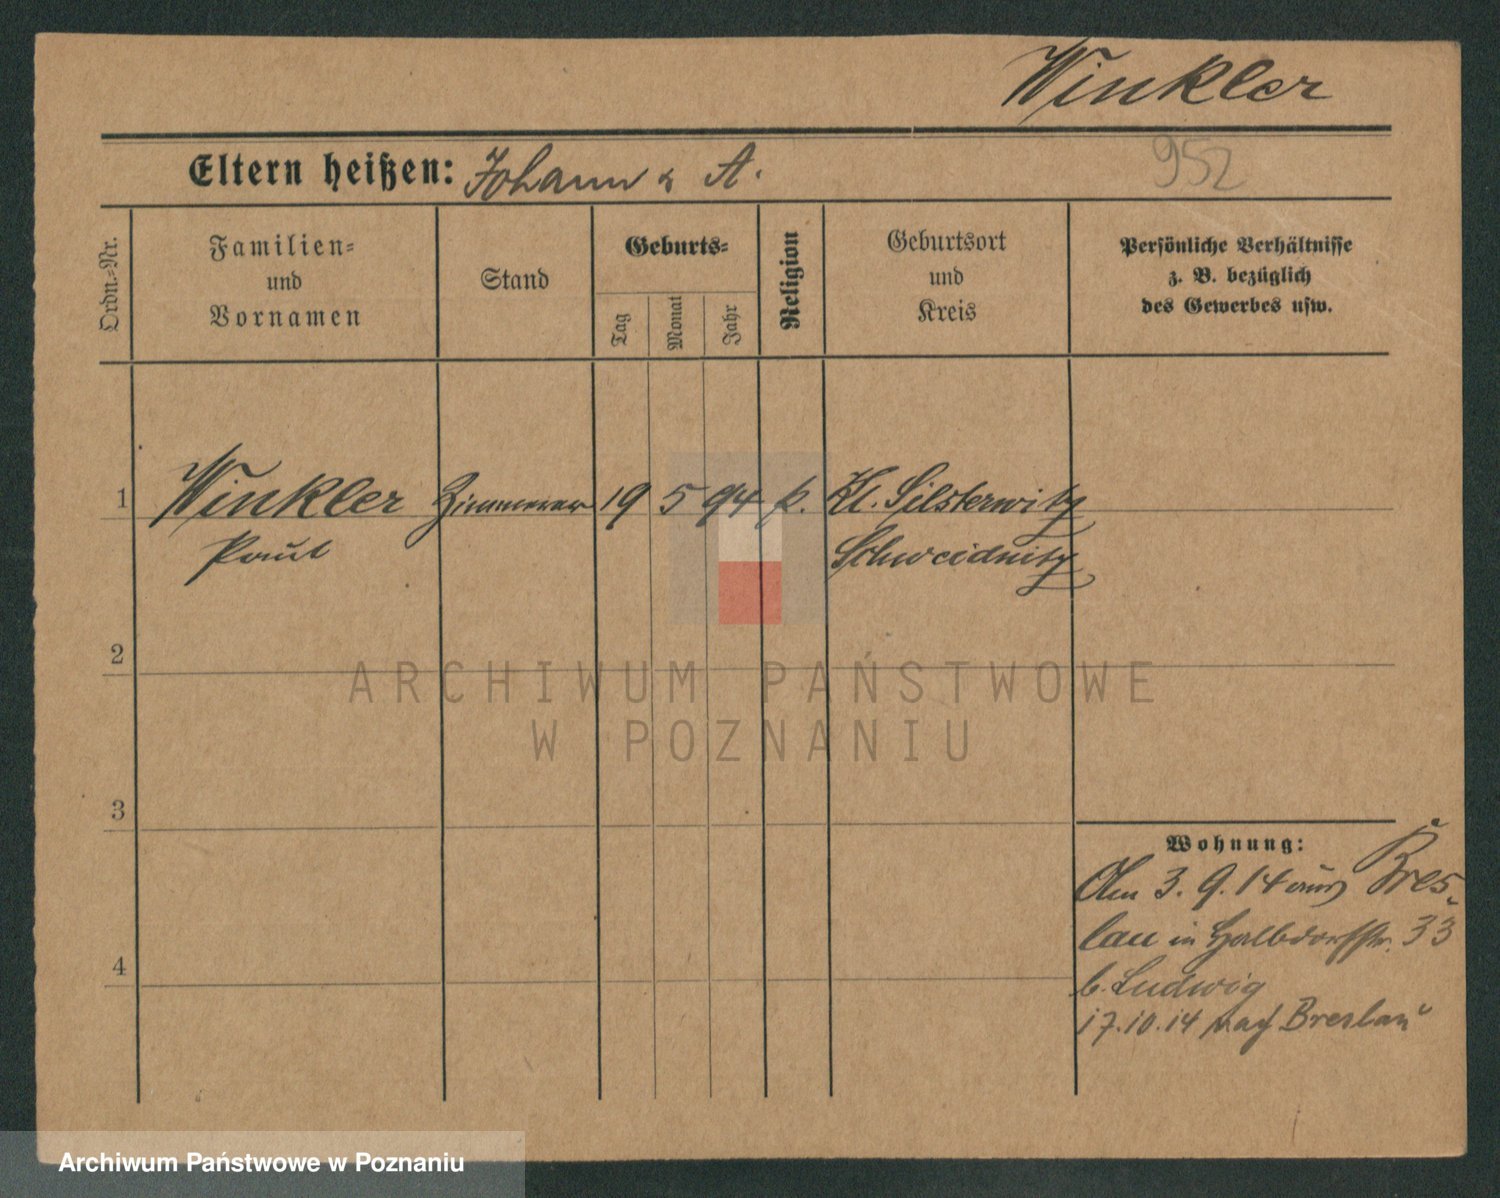 Winkler
Eltern heißen: Johann u A.
952
Ordn.-Nr.
Familien-
und
Vornamen
Stand
Geburts-
Tag
Monat
Jahr
Religion
Geburtsort
und
Kreis
Persönliche Verhältnisse
z. B. bezüglich
des Gewerbes usw.
1
Winkler Zimmerer 19 5 94 k. Kl. Silsterwitz
Paul
Schweidnitz
2
3
4
Wohnung:
Am 3. 9. 14 aus Bres-
lau in Halbdorfstr. 33
b. Ludwig
17.10.14 nach Breslau
ARCHIWUM PAŃSTWOWE
W POZNANIU
Archiwum Państwowe w Poznaniu